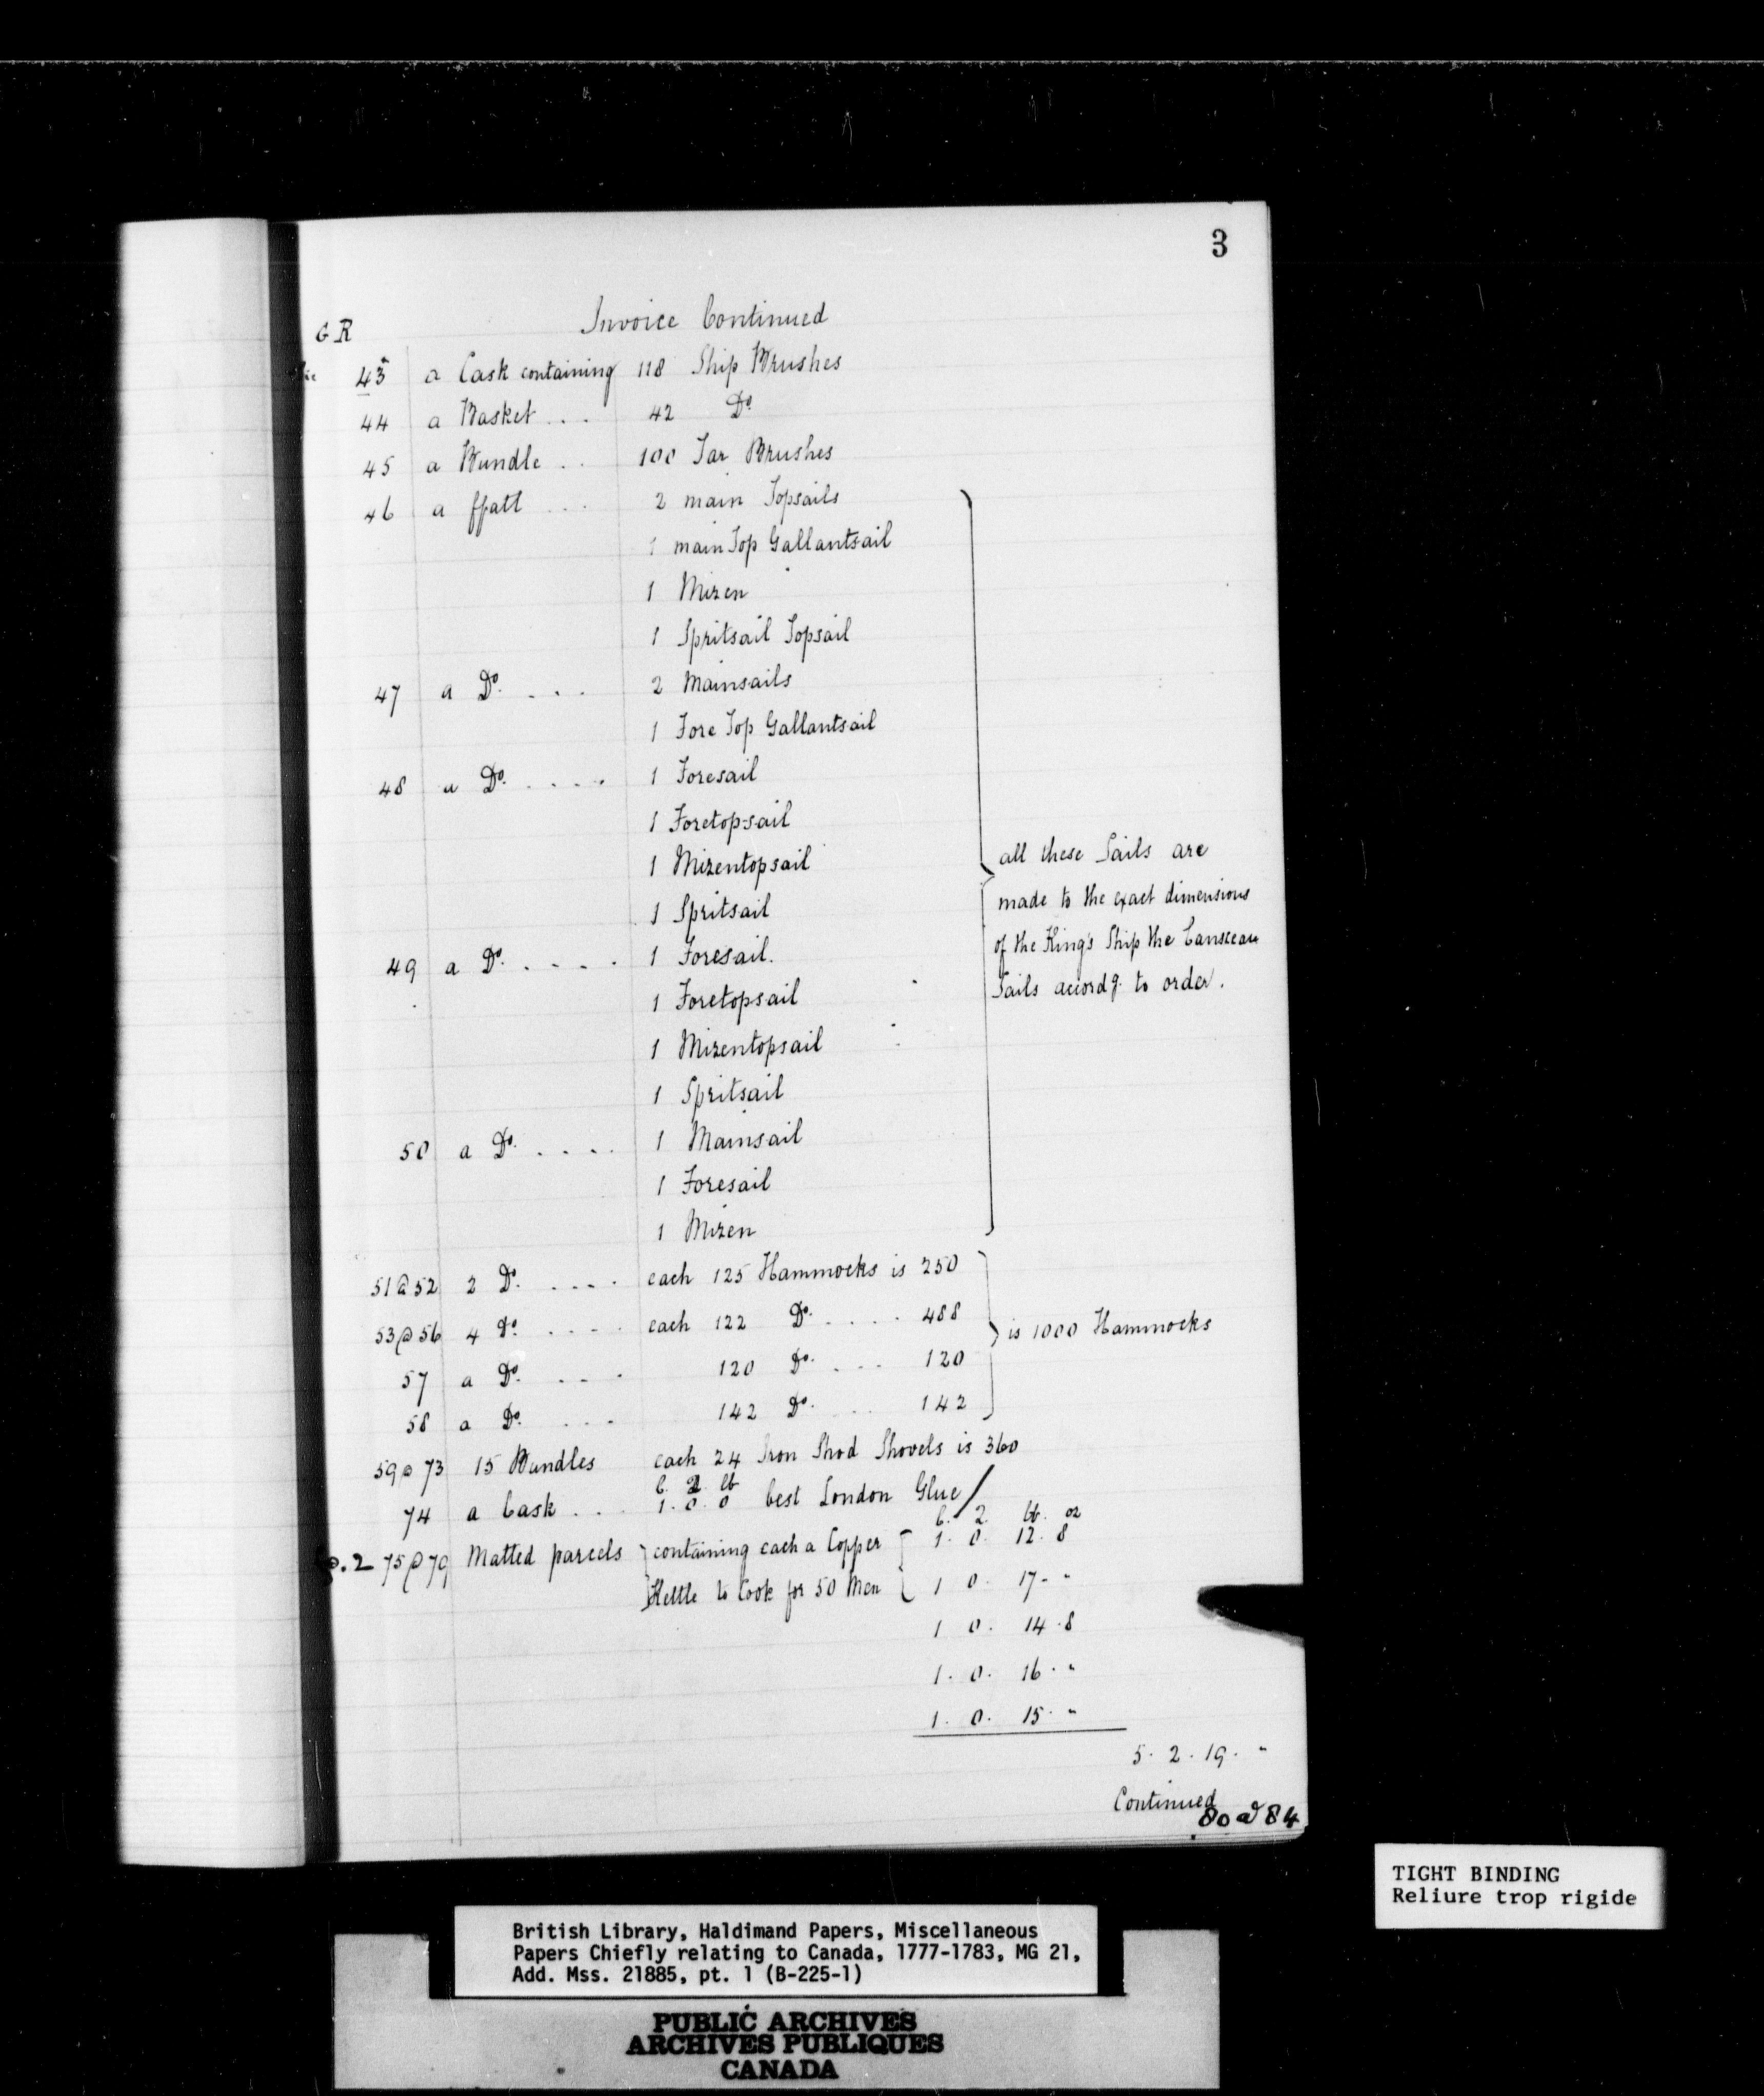 3
Invoice Continued
G R
43 a Cask containing 118 Ship Brushes
44 a Basket . . . 42 Do.
45 a Bundle . . 100 Tar Brushes
46 a ffatt . . . 2 main Topsails
1 main Top Gallantsail
1 Mizen
1 Spritsail Topsail
47 a Do. . . . 2 Mainsails
1 Fore Top Gallantsail
48 a Do. . . . . 1 Foresail
1 Foretopsail
1 Mizentopsail
1 Spritsail
all these Sails are
made to the exact dimensions
of the King's Ship the Canceau
Sails accordg. to order.
49 a Do. . . . . 1 Foresail.
1 Foretopsail
1 Mizentopsail
1 Spritsail
50 a Do. . . . . 1 Mainsail
1 Foresail
1 Mizen
51 @ 52 2 Do. . . . . each 125 Hammocks is 250
53 @ 56 4 Do. . . . . each 122 Do. . . . . 488
is 1000 Hammocks
57 a Do. . . . 120 Do. . . . 120
58 a Do. . . . 142 Do. . . . 142
59 @ 73 15 Bundles each 24 Iron Shod Shovels is 360
C. 2. lb
74 a Cask . . . 1. 0. 0 best London Glue /
C. 2. lb. oz
.2 75 @ 79 Matted parcels containing each a Copper 1. 0. 12. 8
Kettle to Cook for 50 Men 1 0. 17. "
1 0. 14. 8
1. 0. 16. "
1. 0. 15. "
5. 2. 19. "
Continued
80 @ 84
TIGHT BINDING
Reliure trop rigide
British Library, Haldimand Papers, Miscellaneous
Papers Chiefly relating to Canada, 1777-1783, MG 21,
Add. Mss. 21885, pt. 1 (B-225-1)
PUBLIC ARCHIVES
ARCHIVES PUBLIQUES
CANADA